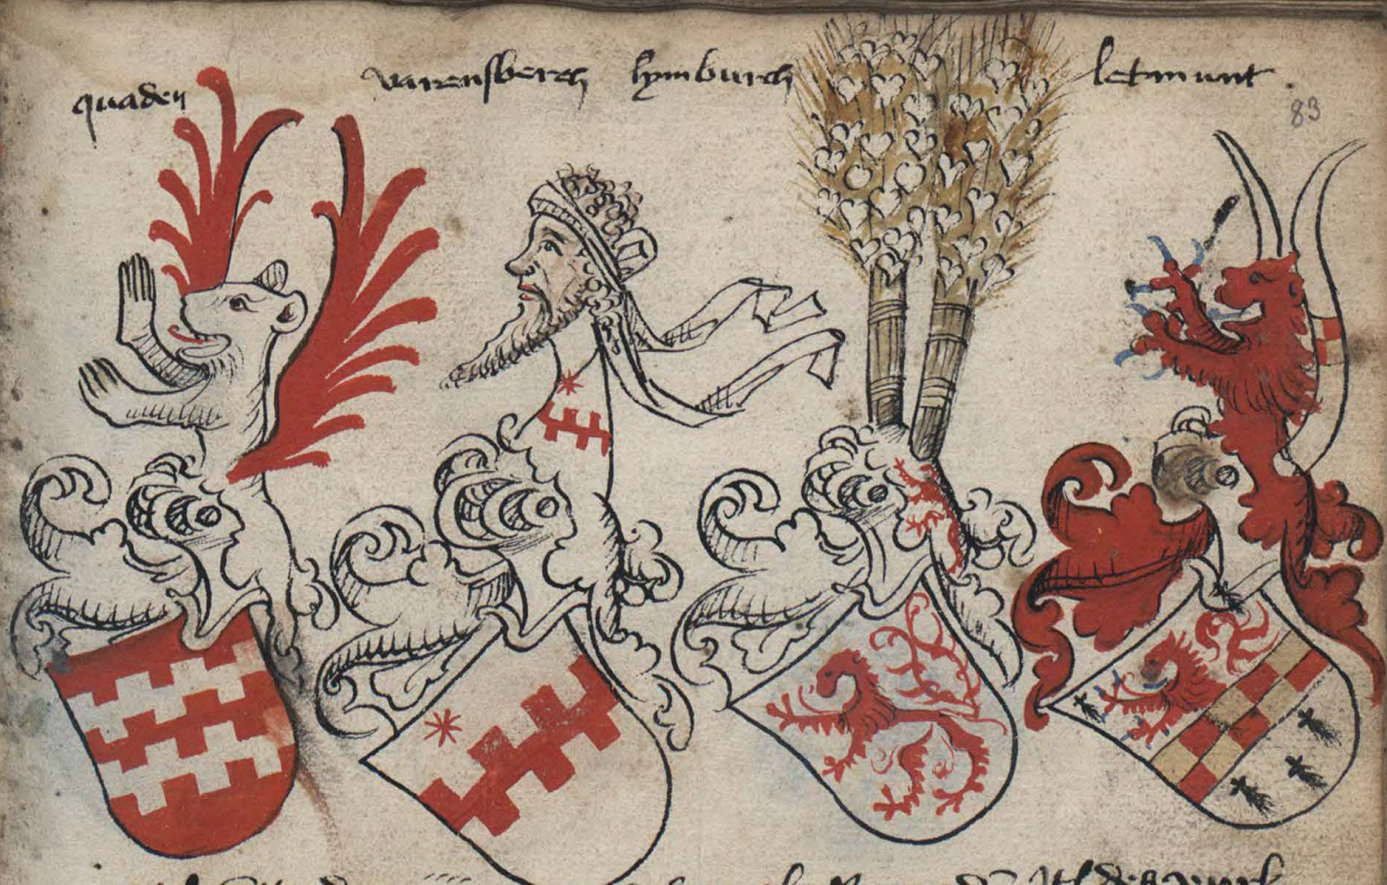 quaden varensberch lymburch letmunt
83